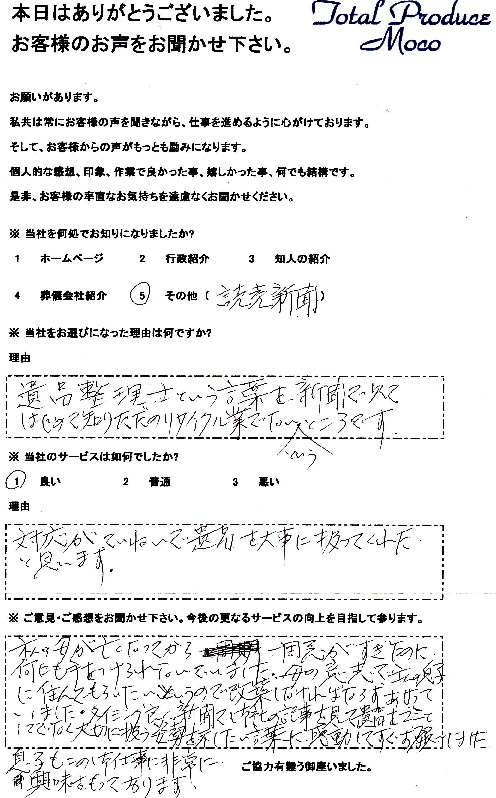 本日はありがとうございました。
お客様のお声をお聞かせ下さい。
Total Produce
Moco
お願いがあります。
私共は常にお客様の声を聞きながら、仕事を進めるように心がけております。
そして、お客様からの声がもっとも励みになります。
個人的な感想、印象、作業で良かった事、嬉しかった事、何でも結構です。
是非、お客様の率直なお気持ちを遠慮なくお聞かせください。
※ 当社を何処でお知りになりましたか?
1 ホームページ 2 行政紹介 3 知人の紹介
4 葬儀会社紹介 5 その他 ( 読売新聞)
※ 当社をお選びになった理由は何ですか?
理由
遺品整理士という言葉を、新聞で
はじめて知りただのリサイクル業でないところです。
という
※ 当社のサービスは如何でしたか?
1 良い 2 普通 3 悪い
理由
対応がていねいで遺品を大事に扱ってくれた
と思います。
※ ご意見・ご感想をお聞かせ下さい。今後の更なるサービスの向上を目指して参ります。
私の母が亡くなってから 一周忌がすぎたのに
何にも手をつけられないでいました。母の意志で
に住んでもらいたいというので改築しなければならず
いました。タイミング良く新聞で の記事を見て遺品をゴミと
してでなく大切に扱う姿勢を 言葉に感動してすぐお願いしました
見るもこのお仕事に非常に
興味をもっております。
ご協力有難う御座いました。